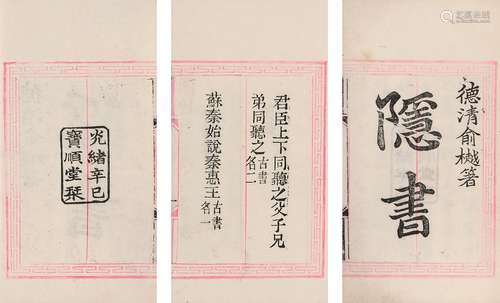 德清俞樾箸
隱書
君臣上下同聽之父子兄
弟同聽之古書名二
蘇秦始說秦惠王古書名一
光緒辛巳
寶順堂栞